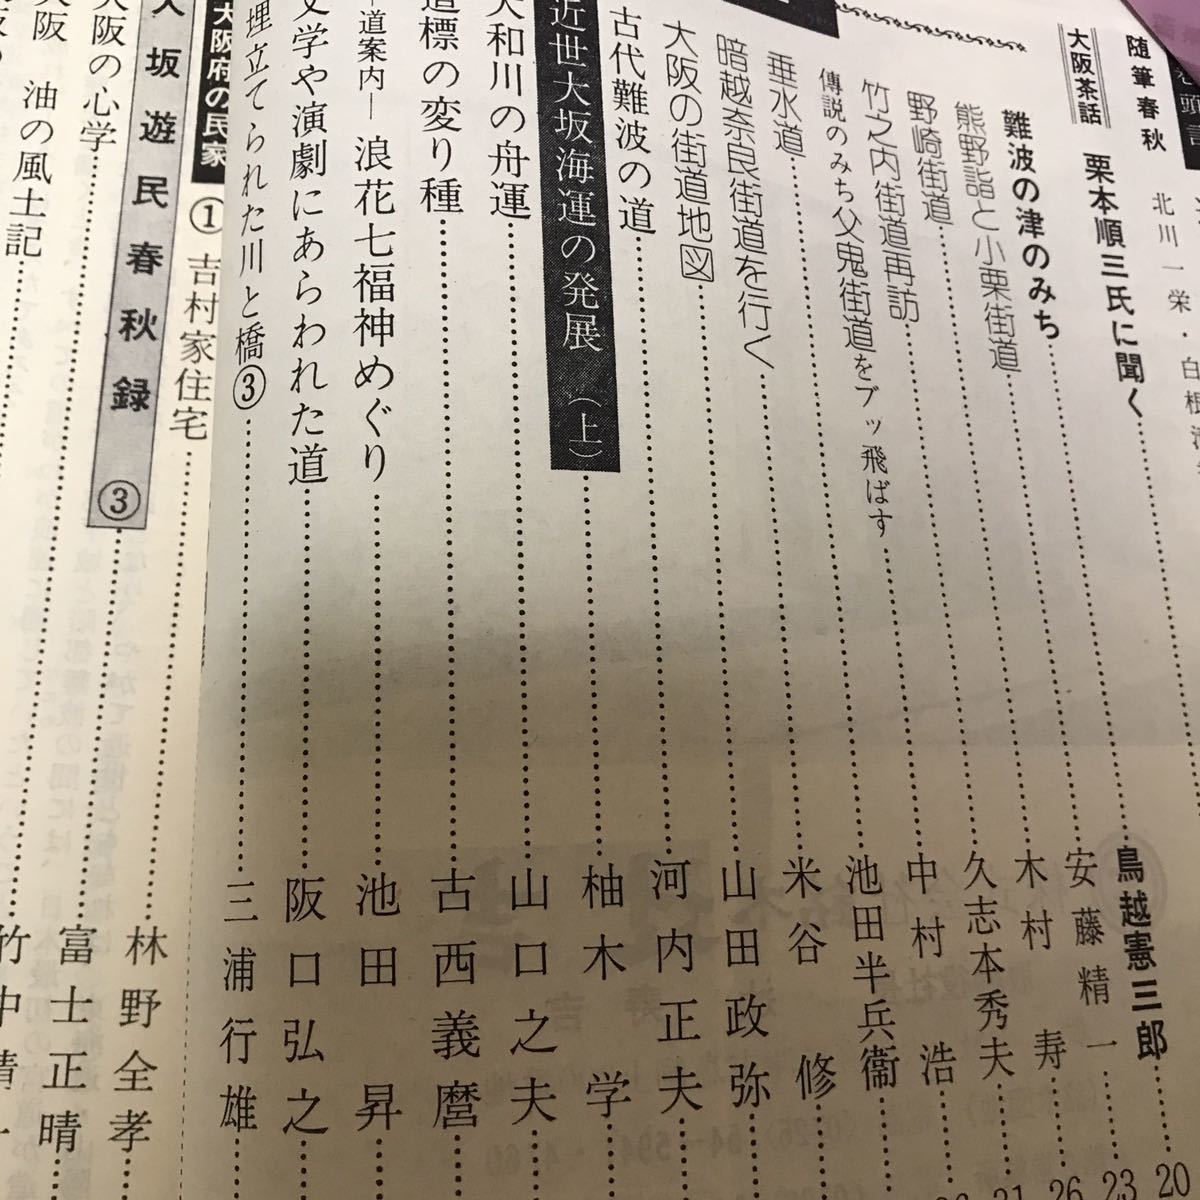 随筆春秋 北川一栄・白根
大阪茶話 栗本順三氏に聞く 鳥越憲三郎 20
難波の津のみち 安藤精一 23
熊野詣と小栗街道 木村寿 26
野崎街道 久志本秀夫 31
竹之内街道再訪 中村浩
傳説のみち父鬼街道をブッ飛ばす 池田半兵衞
垂水道 米谷修
暗越奈良街道を行く 山田政弥
大阪の街道地図
古代難波の道 河内正夫
近世大坂海運の発展(上) 柚木学
大和川の舟運 山口之夫
道標の変り種 古西義麿
―道案内― 浪花七福神めぐり 池田昇
文学や演劇にあらわれた道 阪口弘之
埋立てられた川と橋③ 三浦行雄
大阪府の民家 ① 吉村家住宅 林野全孝
大坂遊民春秋録 ③ 富士正晴
大阪の心学 竹中靖一
大阪 油の風土記